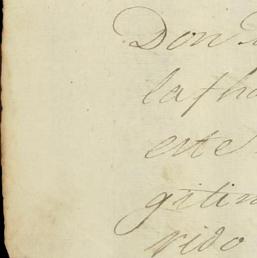 Don
la fha
este
gitim
rido